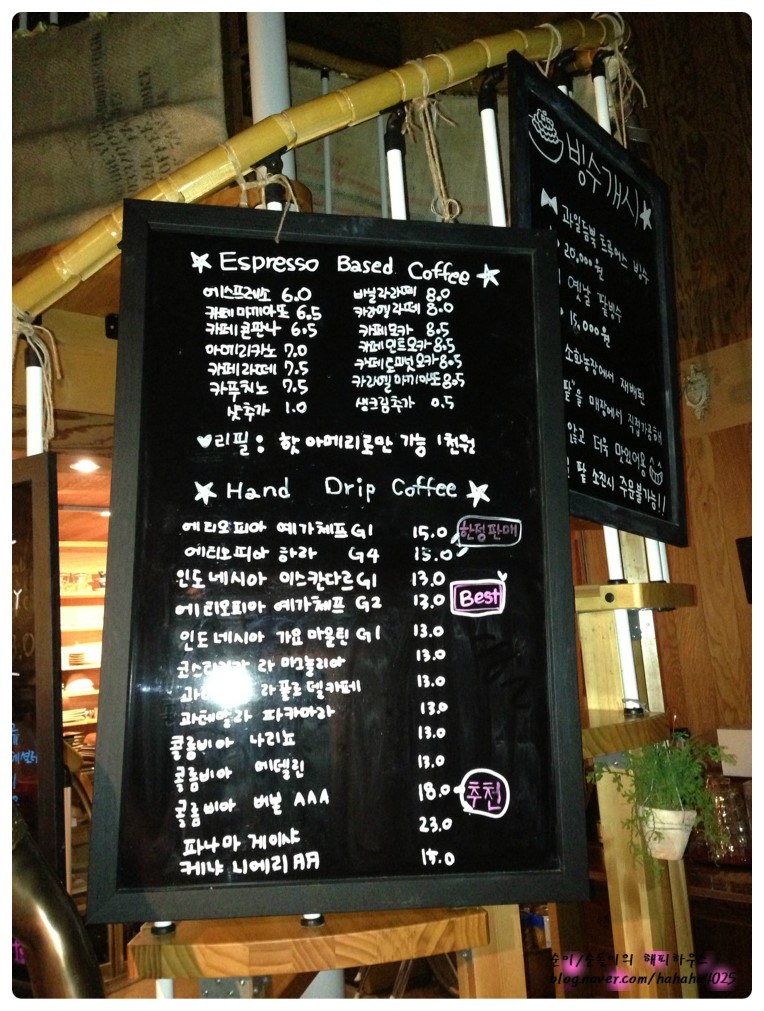 ★ Espresso Based Coffee ★
에스프레소 6.0
카페 마끼아또 6.5
카페 콘판나 6.5
아메리카노 7.0
카페 라떼 7.5
카푸치노 7.5
샷추가 1.0
바닐라라떼 8.0
카라멜라떼 8.0
카페모카 8.5
카페 민트모카 8.5
카페 토피넛 모카 8.5
카라멜 마끼아또 8.5
생크림추가 0.5
♥리필 : 핫 아메리로만 가능 1천원
★ Hand Drip Coffee ★
에티오피아 예가체프 G1 15.0 한정판매
에티오피아 하라 G4 15.0
인도네시아 이스칸다르 G1 13.0
에티오피아 예가체프 G2 13.0 Best
인도네시아 가요마운틴 G1 13.0
라 마그놀리아 13.0
라플로 델카페 13.0
과테말라 파카마라 13.0
콜롬비아 나리뇨 13.0
콜롬비아 메델린 13.0
콜롬비아 AAA 18.0 추천
파나마 게이샤 23.0
케냐 니에리 AA
빙수개시★
과일듬뿍 빙수
20,000원
옛날 팥빙수
15,000원
소화농장에서 재배된
팥"을 매장에서 직접가공해
않고 더욱 맛있어용
팥 소진시 주문불가능!!
해피하우스
blog.naver.com/hahaha4025